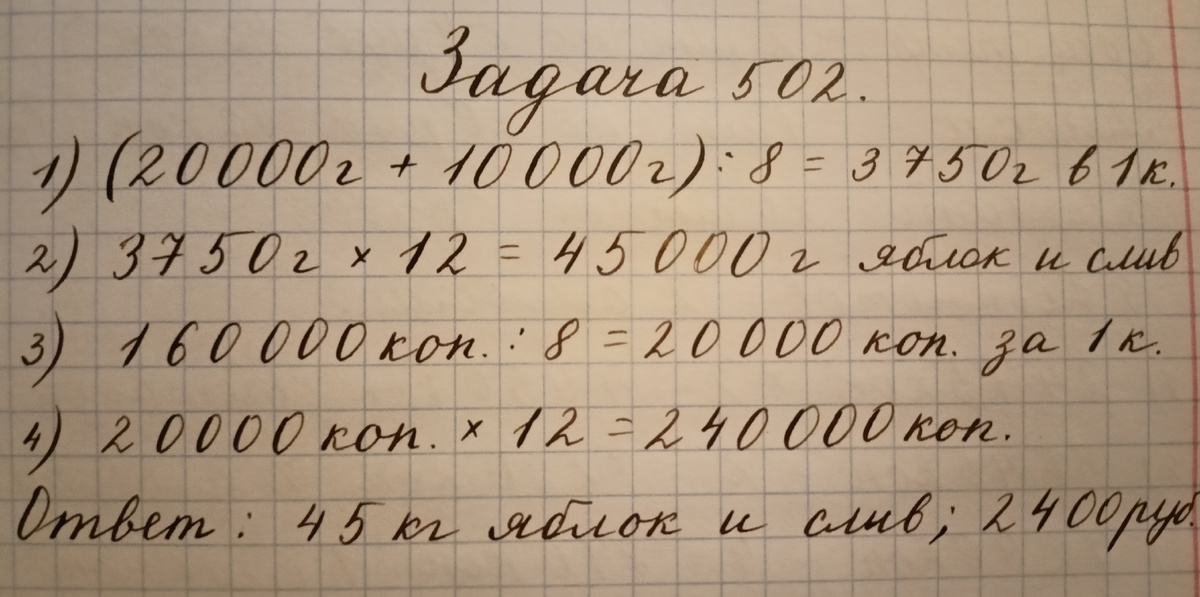 Задача 502.
1) (20000г + 10000г) : 8 = 3750г в 1к.
2) 3750г × 12 = 45000 г яблок и слив
3) 160000 коп. : 8 = 20000 коп. за 1 к.
4) 20000 коп. × 12 = 240000 коп.
Ответ: 45 кг яблок и слив; 2400 руб.